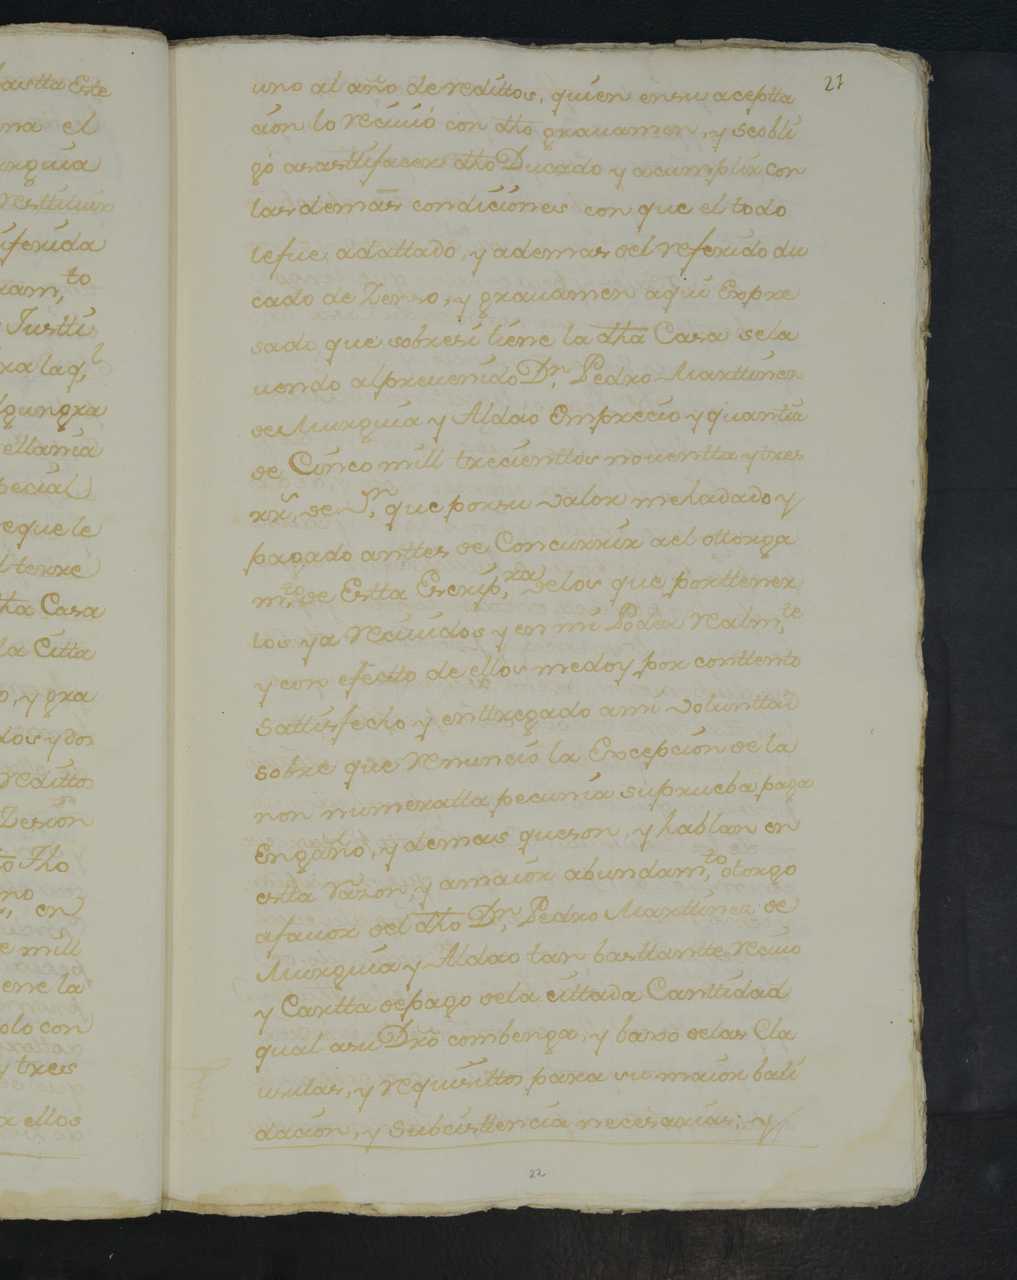 27
uno al año de redittos, quien ensu aceptta
cion lo reciuió con dho grauamen, y seobli
gó asasttifacer dho Ducado y acumplir con
las demas condiciones con que el todo
lefue adattado, y ademas del referido du
cado de Zenso, y grauamen aqui Expre
sado que sobresi tiene la dha Casa sela
uendo alpreuenido Dn, Pedro Marttinez
de Murguia y Aldao Emprecio y quantia
de Cinco mill trecienttos nouentta y tres
rrs, de vn, que porsu valor mehadado y
pagado anttes de Concurrir ael ottorga
mto, de Estta Escrip,ra delos que porttener
los ya reciuidos y en mi Poder realm,te
y con efectto de ellos medoy por conttento
Sattisfecho y enttregado ami voluntta
sobre que renuncio la Excepcion de la
non numeratta pecunia suprueba paga
Engaño, y demas queson, y hablan en
estta razon, y amaior abundam,to otorgo
afauor del dho Dn, Pedro Marttinez de
Murguia y Aldao tan basttantte reciuo
y Cartta depago dela cittada Canttidad
qual asu Dro combenga, y baxo delas Cla
usulas, y requisittos para su maior bali
dacion, y Subcisttencia necesarias; y
22
faustta Este
el
murguia
resttituir
referida
to
Justti
ra laq,l
algungra
ellania
pecial
eque le
terre
dha Casa
la Citta
o, y gra
dos y dos
redittos
Zesion
dho
en
mill
ene la
olo con
y tres
a ellos